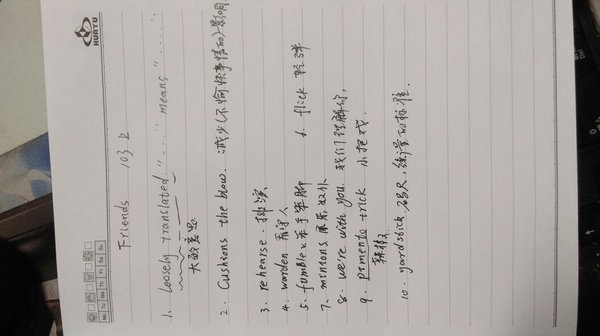 HUAYU
Mo Tu We Th Fr Sa Su
Friends 103 上
1. Loosely translated "....." means "....."
大致意思
2. Cushions the blow. 减少(不愉快事情的)影响
3. rehearse. 排演
4. warden 看守人
5. fumble v. 笨手笨脚 6. flick 轻弹
7. minions 奴仆
8. we're with you. 我们理解你.
9. pimento trick 小把戏.
辣椒
10. yardstick 码尺, 衡量的标准.